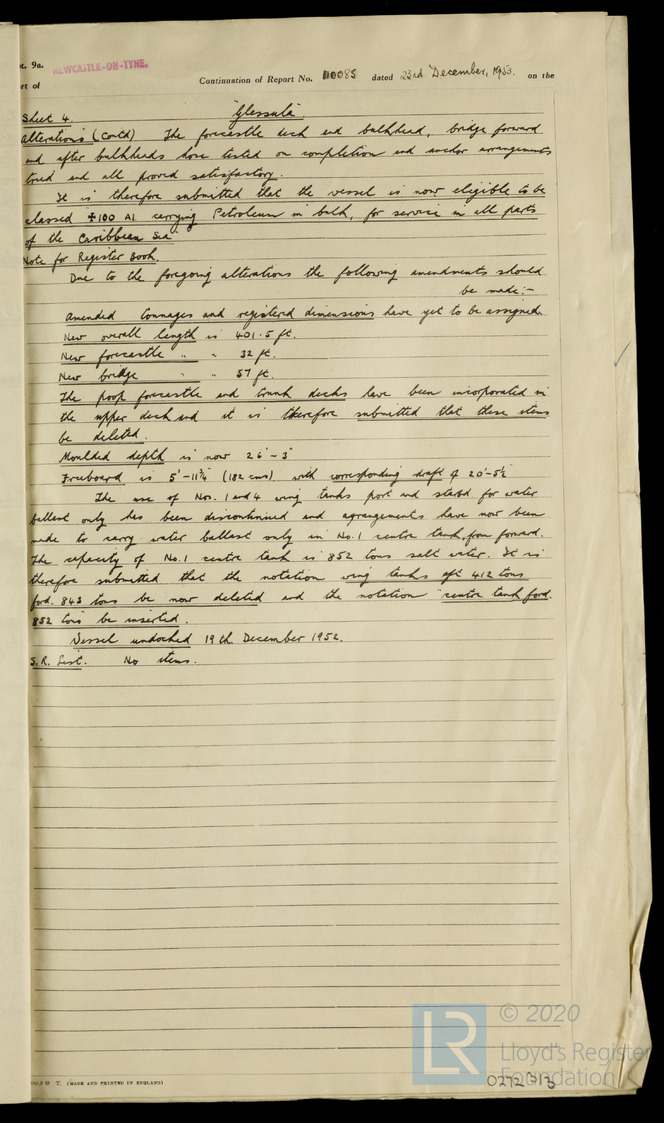 pt. 9a.
NEWCASTLE-ON-TYNE.
rt of
Continuation of Report No. dated 23rd December, 1953. on the
Sheet 4. "Glessula"
Alterations (Contd) The forecastle deck and bulkhead, bridge forward
and after bulkheads hose tested on completion and anchor arrangements
tried and all proved satisfactory.
It is therefore submitted that the vessel is now eligible to be
classed ✠100 A1 carrying Petroleum in bulk, for service in all parts
of the Caribbean Sea"
Note for Register Book.
Due to the foregoing alterations the following amendments should
be made:-
Amended tonnages and registered dimensions have yet to be assigned.
New overall length is 401.5 ft.
New forecastle " " 32 ft.
New bridge " " 57 ft.
The poop forecastle and trunk decks have been incorporated in
the upper deck and it is therefore submitted that these items
be deleted.
Moulded depth is now 26'-3"
Freeboard is 5'-11¾" (182 cms) with corresponding draft of 20'-5½
The use of Nos. 1 and 4 wing tanks port and starbd for water
ballast only has been discontinued and agrangements have now been
made to carry water ballast only in No.1 centre tank from forward.
The capacity of No.1 centre tank is 852 tons salt water. It is
therefore submitted that the notation wing tanks aft 412 tons
ford. 843 tons be now deleted and the notation "centre tank ford.
852 tons be inserted.
Vessel undocked 19th December 1952.
S.R. List. No items.
T. (MADE AND PRINTED IN ENGLAND)
LR
© 2020
Lloyd's Register
Foundation